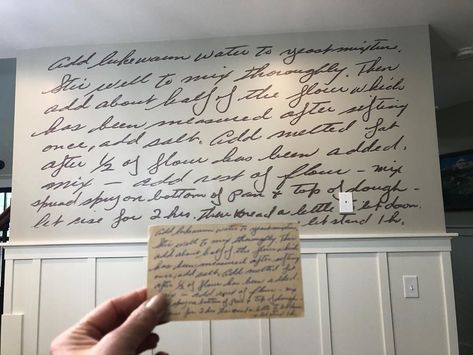 Add lukewarm water to yeast mixture.
Stir well to mix thoroughly. Then
add about half of the flour which
has been measured after sifting
once, add salt. Add melted fat
after 1/2 of flour has been added.
mix - add rest of flour - mix
spread spry on bottom of pan & top of dough -
let rise for 2 hrs. Then knead a little & let down.
let stand 1 h.
Add lukewarm water to yeast mixture.
Stir well to mix thoroughly. Then
add about half of the flour which
has been measured after sifting
once, add salt. Add melted fat
after 1/2 of flour has been added.
mix - add rest of flour - mix
spread spry on bottom of pan & top of dough -
let rise for 2 hrs. Then knead a little & let down.
let stand 1 h.